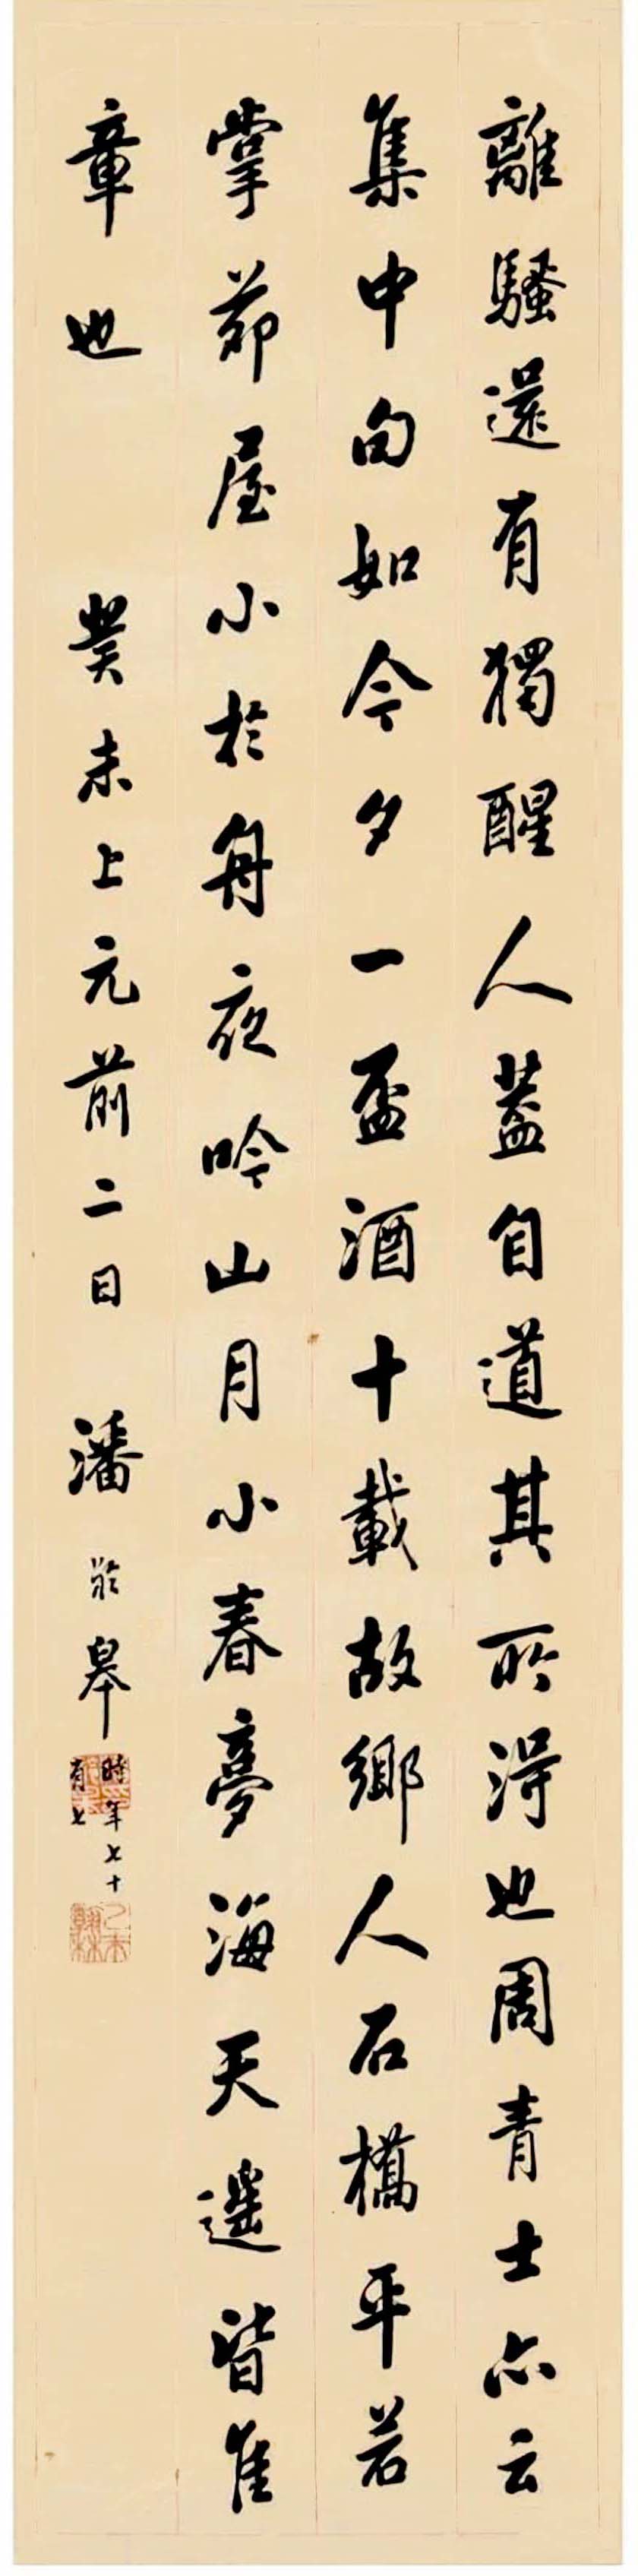 離騷還有獨醒人蓋自道其所得也周青士亦云
集中句如今夕一盃酒十載故鄉人石橋平若
掌茆屋小於舟夜吟山月小春夢海天遥皆隹
章也 癸未上元前二日 潘齡皋
時年七十
有七